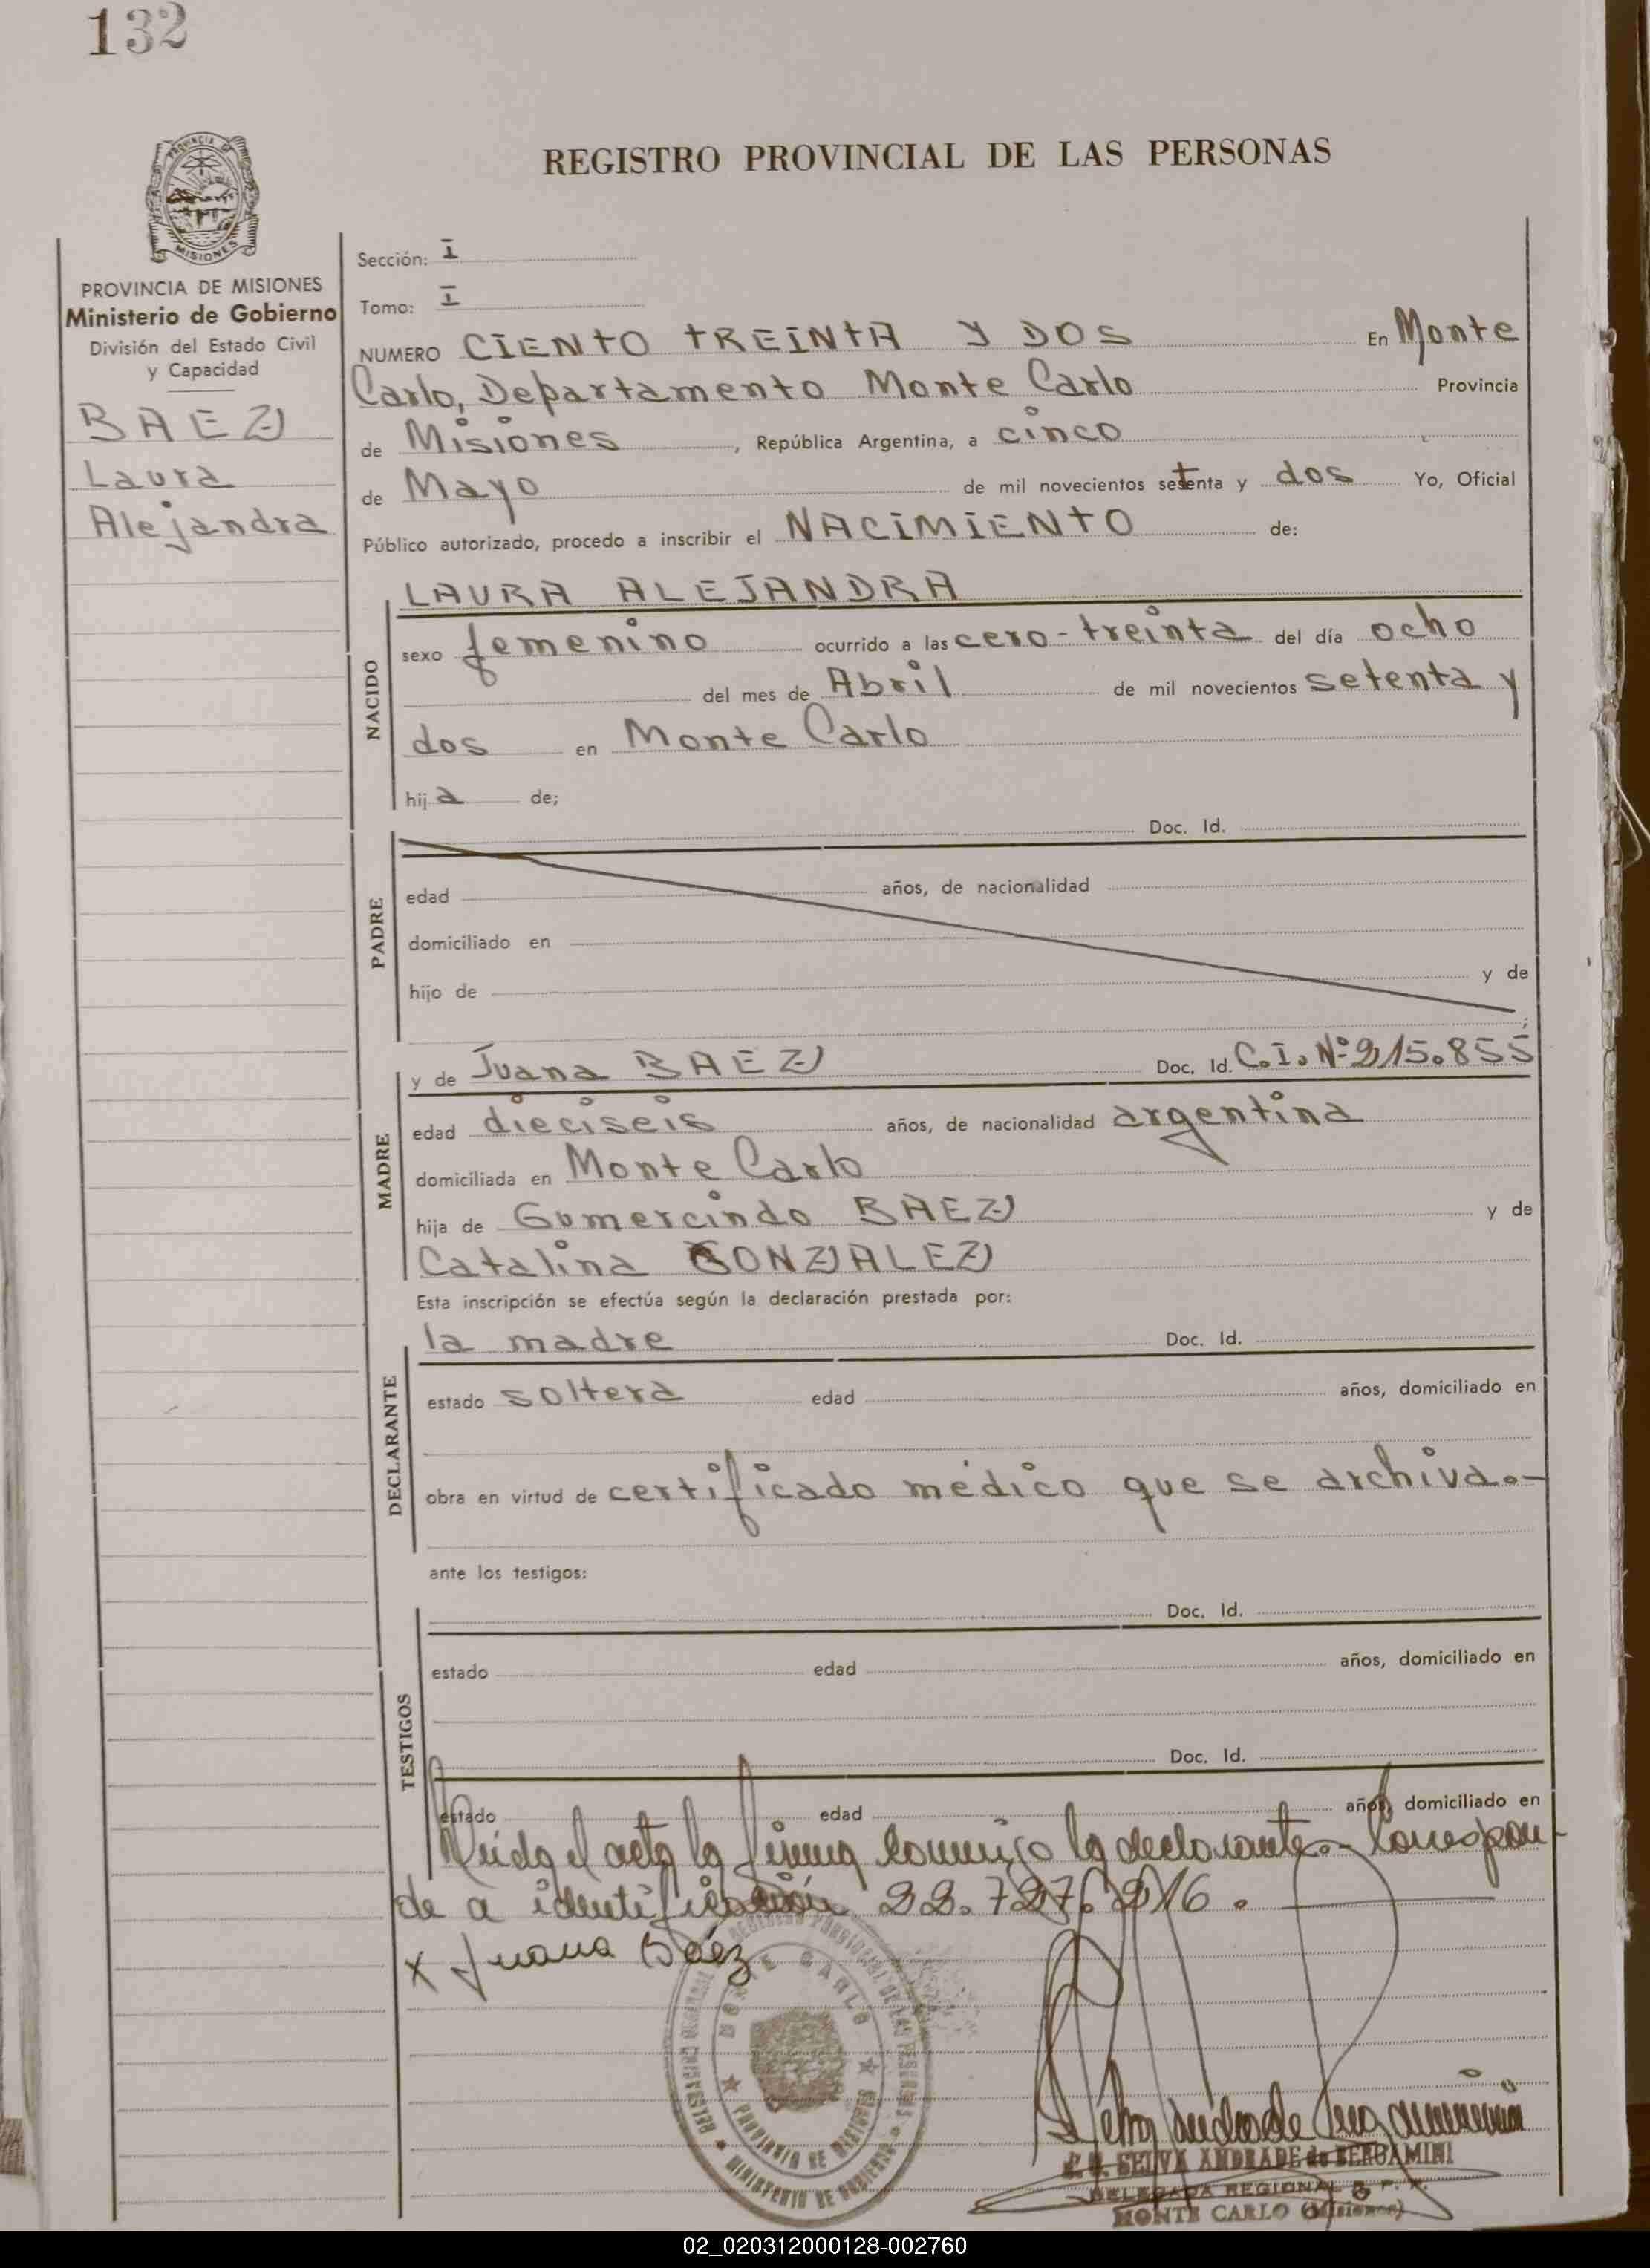 132
REGISTRO PROVINCIAL DE LAS PERSONAS
PROVINCIA DE MISIONES
Ministerio de Gobierno
División del Estado Civil
y Capacidad
BAEZ
Laura
Alejandra
Sección: I
Tomo: I
NUMERO CIENTO TREINTA Y DOS En Monte
Carlo, Departamento Monte Carlo Provincia
de Misiones, República Argentina, a cinco
de Mayo de mil novecientos setenta y dos Yo, Oficial
Público autorizado, procedo a inscribir el NACIMIENTO de:
NACIDO
LAURA ALEJANDRA
sexo femenino ocurrido a las cero-treinta del día ocho
del mes de Abril de mil novecientos setenta y
dos en Monte Carlo
hija de;
PADRE
Doc. Id.
edad años, de nacionalidad
domiciliado en
hijo de y de
;
MADRE
y de Juana BAEZ Doc. Id. C.I. Nº 215.855
edad dieciseis años, de nacionalidad argentina
domiciliada en Monte Carlo
hija de Gumercindo BAEZ y de
Catalina GONZALEZ
Esta inscripción se efectúa según la declaración prestada por:
DECLARANTE
la madre Doc. Id.
estado soltera edad años, domiciliado en
obra en virtud de certificado médico que se archiva.-
ante los testigos:
TESTIGOS
Doc. Id.
estado edad años, domiciliado en
Doc. Id.
estado edad años, domiciliado en
Leída el acta la firma conmigo la declarante.- Correspon-
de a identificación 22.727.216.
x Juana Báez
REGISTRO PROVINCIAL DE LAS PERSONAS
MONTE CARLO
PROVINCIA DE MISIONES
MINISTERIO DE GOBIERNO
SELVA ANDRADE de BERGAMINI
DELEGADA REGIONAL
MONTE CARLO (Misiones)
02_020312000128-002760